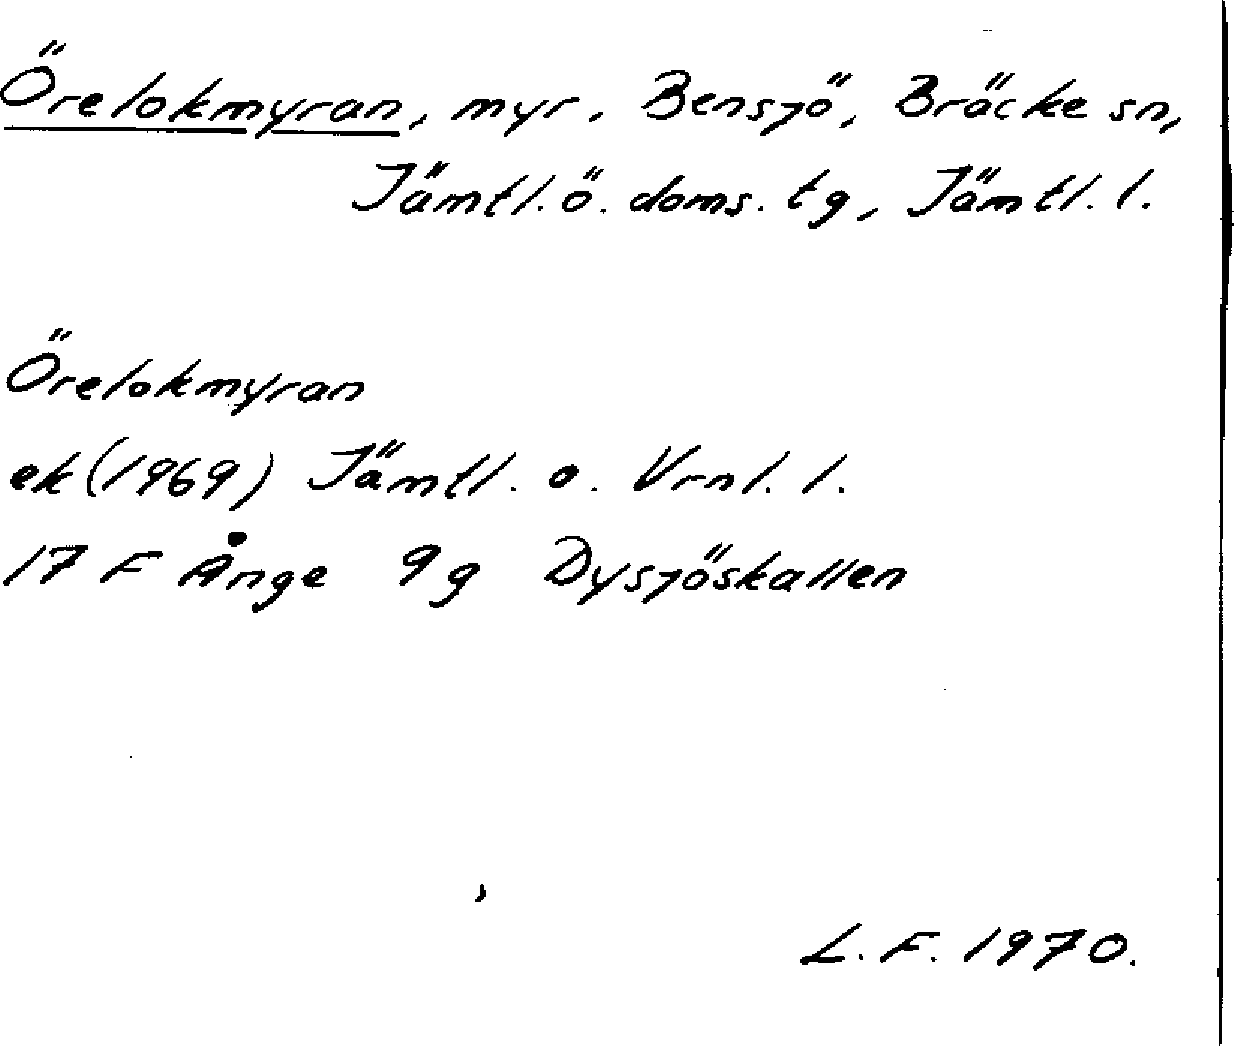 Örelokmyran, myr. Bensjö, Bräcke sn,
Jämtl. ö. doms. tg, Jämtl. l.
Örelokmyran
ek (1969) Jämtl. o. Vrnl. l.
17 F Ånge 9g Dysjöskallen
L. F. 1970.